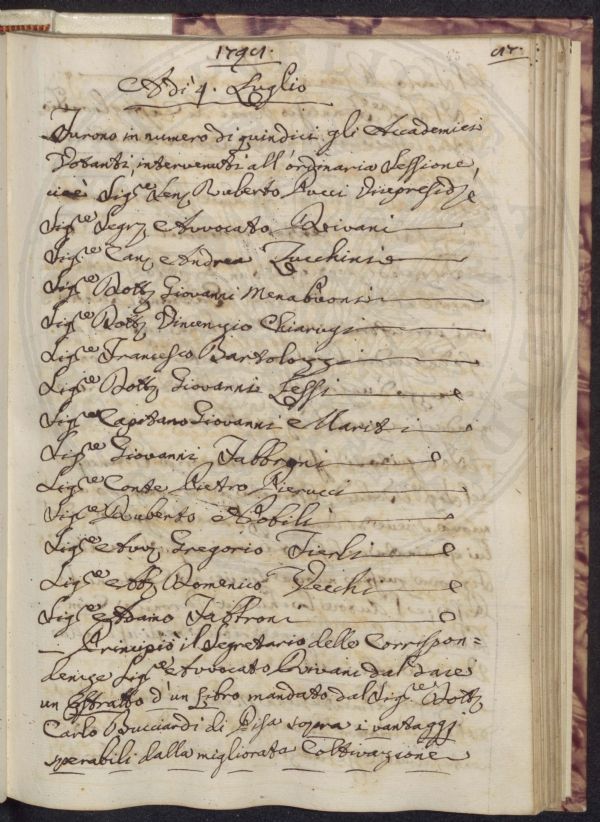 1791.
Adì 4. Luglio
Furono in numero di quindici gli Accademici
Votanti, intervenuti all'ordinaria Sessione,
cioè Sig.re Sen.r Ruberto Pucci Vicepresid.e
Sig.re Segr.o Avvocato Rivani
Sig.re Can.co Andrea Zucchini
Sig.re Dott.r Giovanni Menabuoni
Sig.re Dott.r Vincenzio Chiarugi
Sig.re Francesco Bartolozzi
Sig.re Dott.r Giovanni Lessi
Sig.re Capitano Giovanni Mariti
Sig.re Giovanni Fabbroni
Sig.re Conte Pietro Pierucci
Sig.re Ruberto Nobili
Sig.re Avv.o Gregorio Fierli
Sig.re Ab.e Domenico Vecchi
Sig.re Adamo Fabbroni
Principiò il Segretario delle Corrispon=
denze Sig.re Avvocato Rivani dal dare
un Estratto d'un Libro mandato dal Sig.re Dott.r
Carlo Bucciardi di Pisa sopra i vantaggi
sperabili dalla migliorata Coltivazione